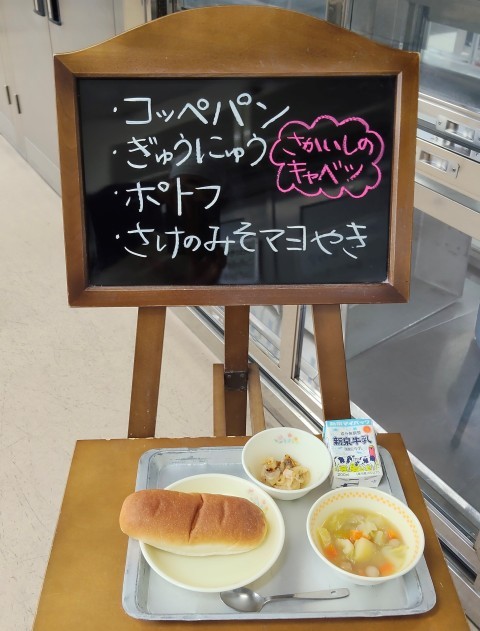 ・コッペパン
・ぎゅうにゅう
・ポトフ
・さけのみそマヨやき
さかいしの
キャベツ
新泉牛乳